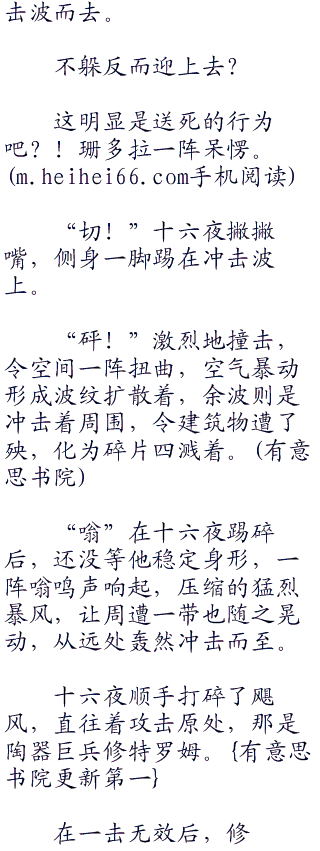 击波而去。
不躲反而迎上去?
这明显是送死的行为
吧?！珊多拉一阵呆愣。
(m.heihei66.com手机阅读)
“切！”十六夜撇撇
嘴，侧身一脚踢在冲击波
上。
“砰！”激烈地撞击，
令空间一阵扭曲，空气暴动
形成波纹扩散着，余波则是
冲击着周围，令建筑物遭了
殃，化为碎片四溅着。(有意
思书院)
“嗡”在十六夜踢碎
后，还没等他稳定身形，一
阵嗡鸣声响起，压缩的猛烈
暴风，让周遭一带也随之晃
动，从远处轰然冲击而至。
十六夜顺手打碎了飓
风，直往着攻击原处，那是
陶器巨兵修特罗姆。{有意思
书院更新第一}
在一击无效后，修